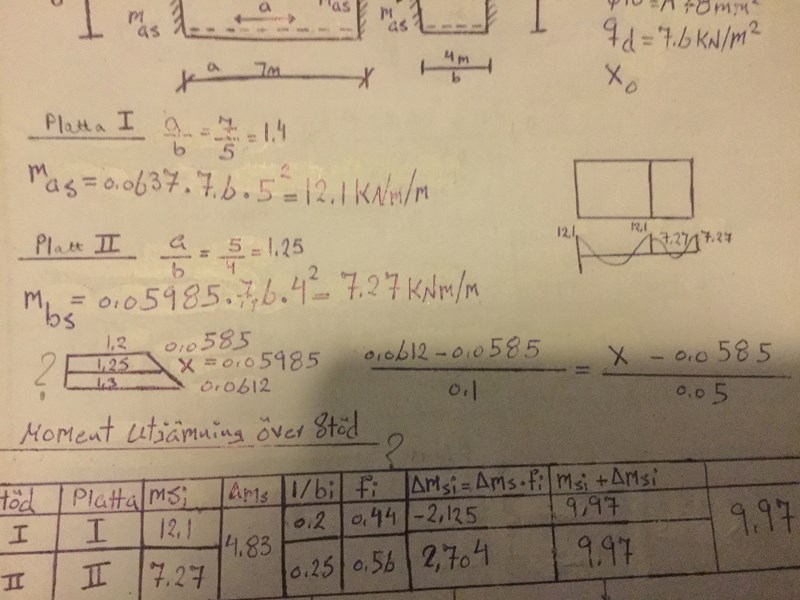 m as
a
m as
m as
a 7m
4m
b
qd = 7.6 KN/m²
X₀
Platta I a/b = 7/5 = 1.4
m as = 0.0637 · 7.6 · 5² = 12.1 KNm/m
12,1 12,1 7.27 7.27
Platt II a/b = 5/4 = 1.25
m bs = 0.05985 · 7,6 · 4² = 7.27 KNm/m
? 1.2 0.0585
1,25 X = 0.05985
1.3 0.0612
0.0612 - 0.0585 / 0.1 = X - 0.0585 / 0.05
Moment Utjämning över Stöd ?
töd Platta msi Δms 1/bi fi Δmsi = Δms · fi msi + Δmsi
I I 12,1 4.83 0.2 0,44 -2,125 9,97 9,97
II II 7.27 0.25 0,56 2,704 9.97